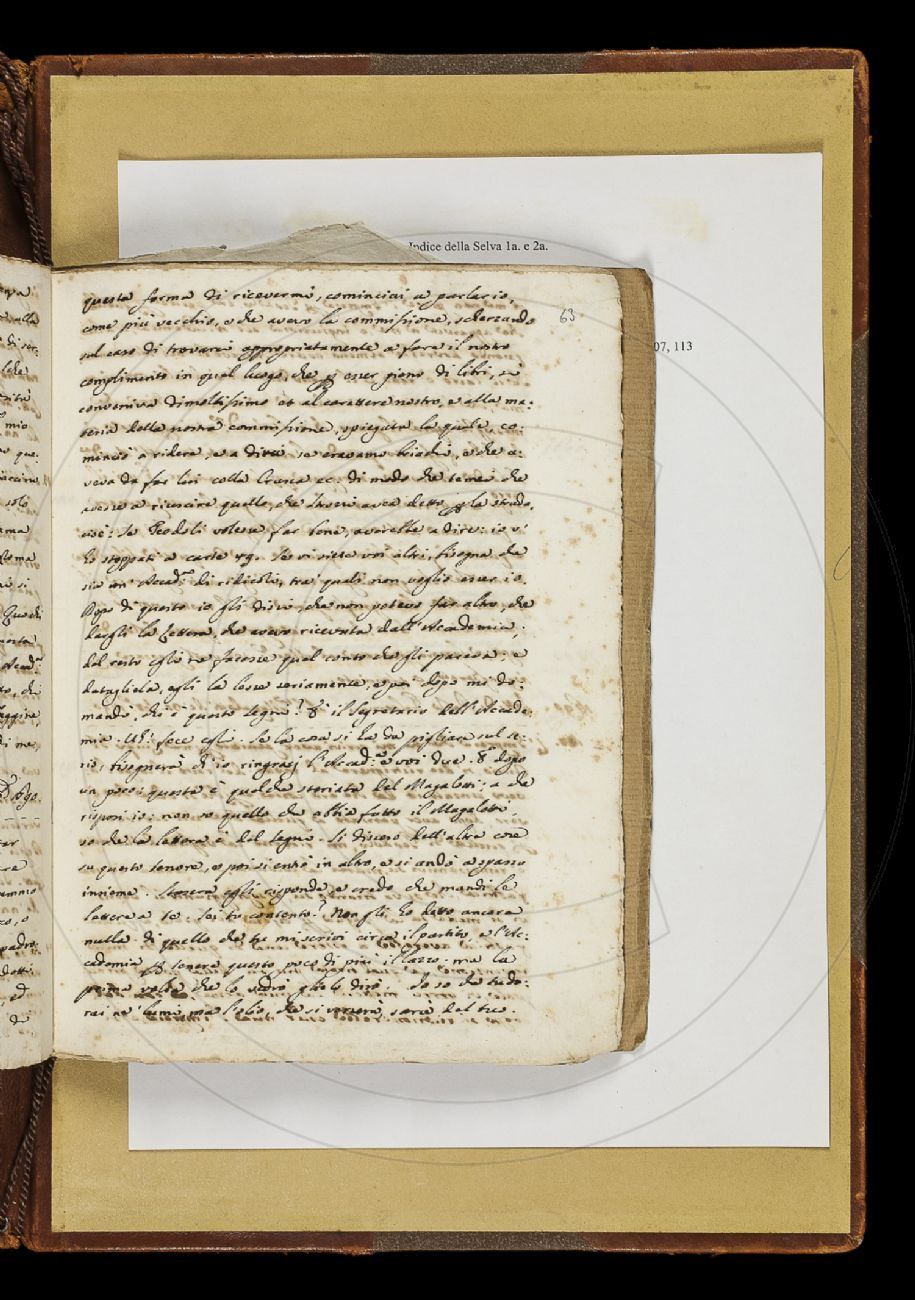 Indice della Selva 1a. e 2a.
07, 113
63
questa forma di ricevermi, cominciai a parlar io,
come più vecchio, e che avevo la commissione, scherzando
sul caso di trovarci appropriatamente a fare il nostro
complimento in quel luogo, che per esser pieno di libri, si
conveniva dimoltissimo et al carattere nostro, e alla ma:
teria della nostra commissione, spiegata la quale, co:
minciò a ridere, e a dirci se eravamo briachi, e che a:
veva da far lui colla Crusca ec. di modo che temei che
avesse a riuscire quello, che
aveva detto per la strada,
cioè: Se Redi volesse far bene, averebbe a dire: io vi
ho stoppati a carte 49. Se vi siete voi altri, bisogna che
sia un' Accad.a di ridicoli, tra' quali non voglio esser io.
Dopo di questo io gli dissi, che non potevo far altro, che
dargli la lettera, che avevo ricevuta dall'Accademia,
del resto egli ne facesse quel conto che gli pareva: e
datagliela, egli la lesse seriamente, e poi dopo mi do:
mandò, chi è questo Segni? È il Segretario dell'Accade:
mia. Uh! fece egli. Se la cosa si ha da pigliare sul se:
rio, bisognerà ch'io ringrazj l'Accad.a e voi due. E dopo
un poco: questa è qualche storiata del Magalotti; a che
risposi io: non so quello che abbia fatto il Magalotti,
so che la lettera è del Segni. Si dissero dell'altre cose
su questo tenore, e poi si entrò in altro, e si andò a spasso
insieme. Stasera egli risponde, e credo che mandi le
lettere a te. Sei tu contento? Non gli ho detto ancora
nulla di quello che tu mi scrivi circa il partito, e l'Ac:
cademia per tenere questo poco di più il lazzo: ma la
prima volta che lo vedrò glielo dirò. Io so che
rai
lume, ma l'olio, che si
sarà del tuo.